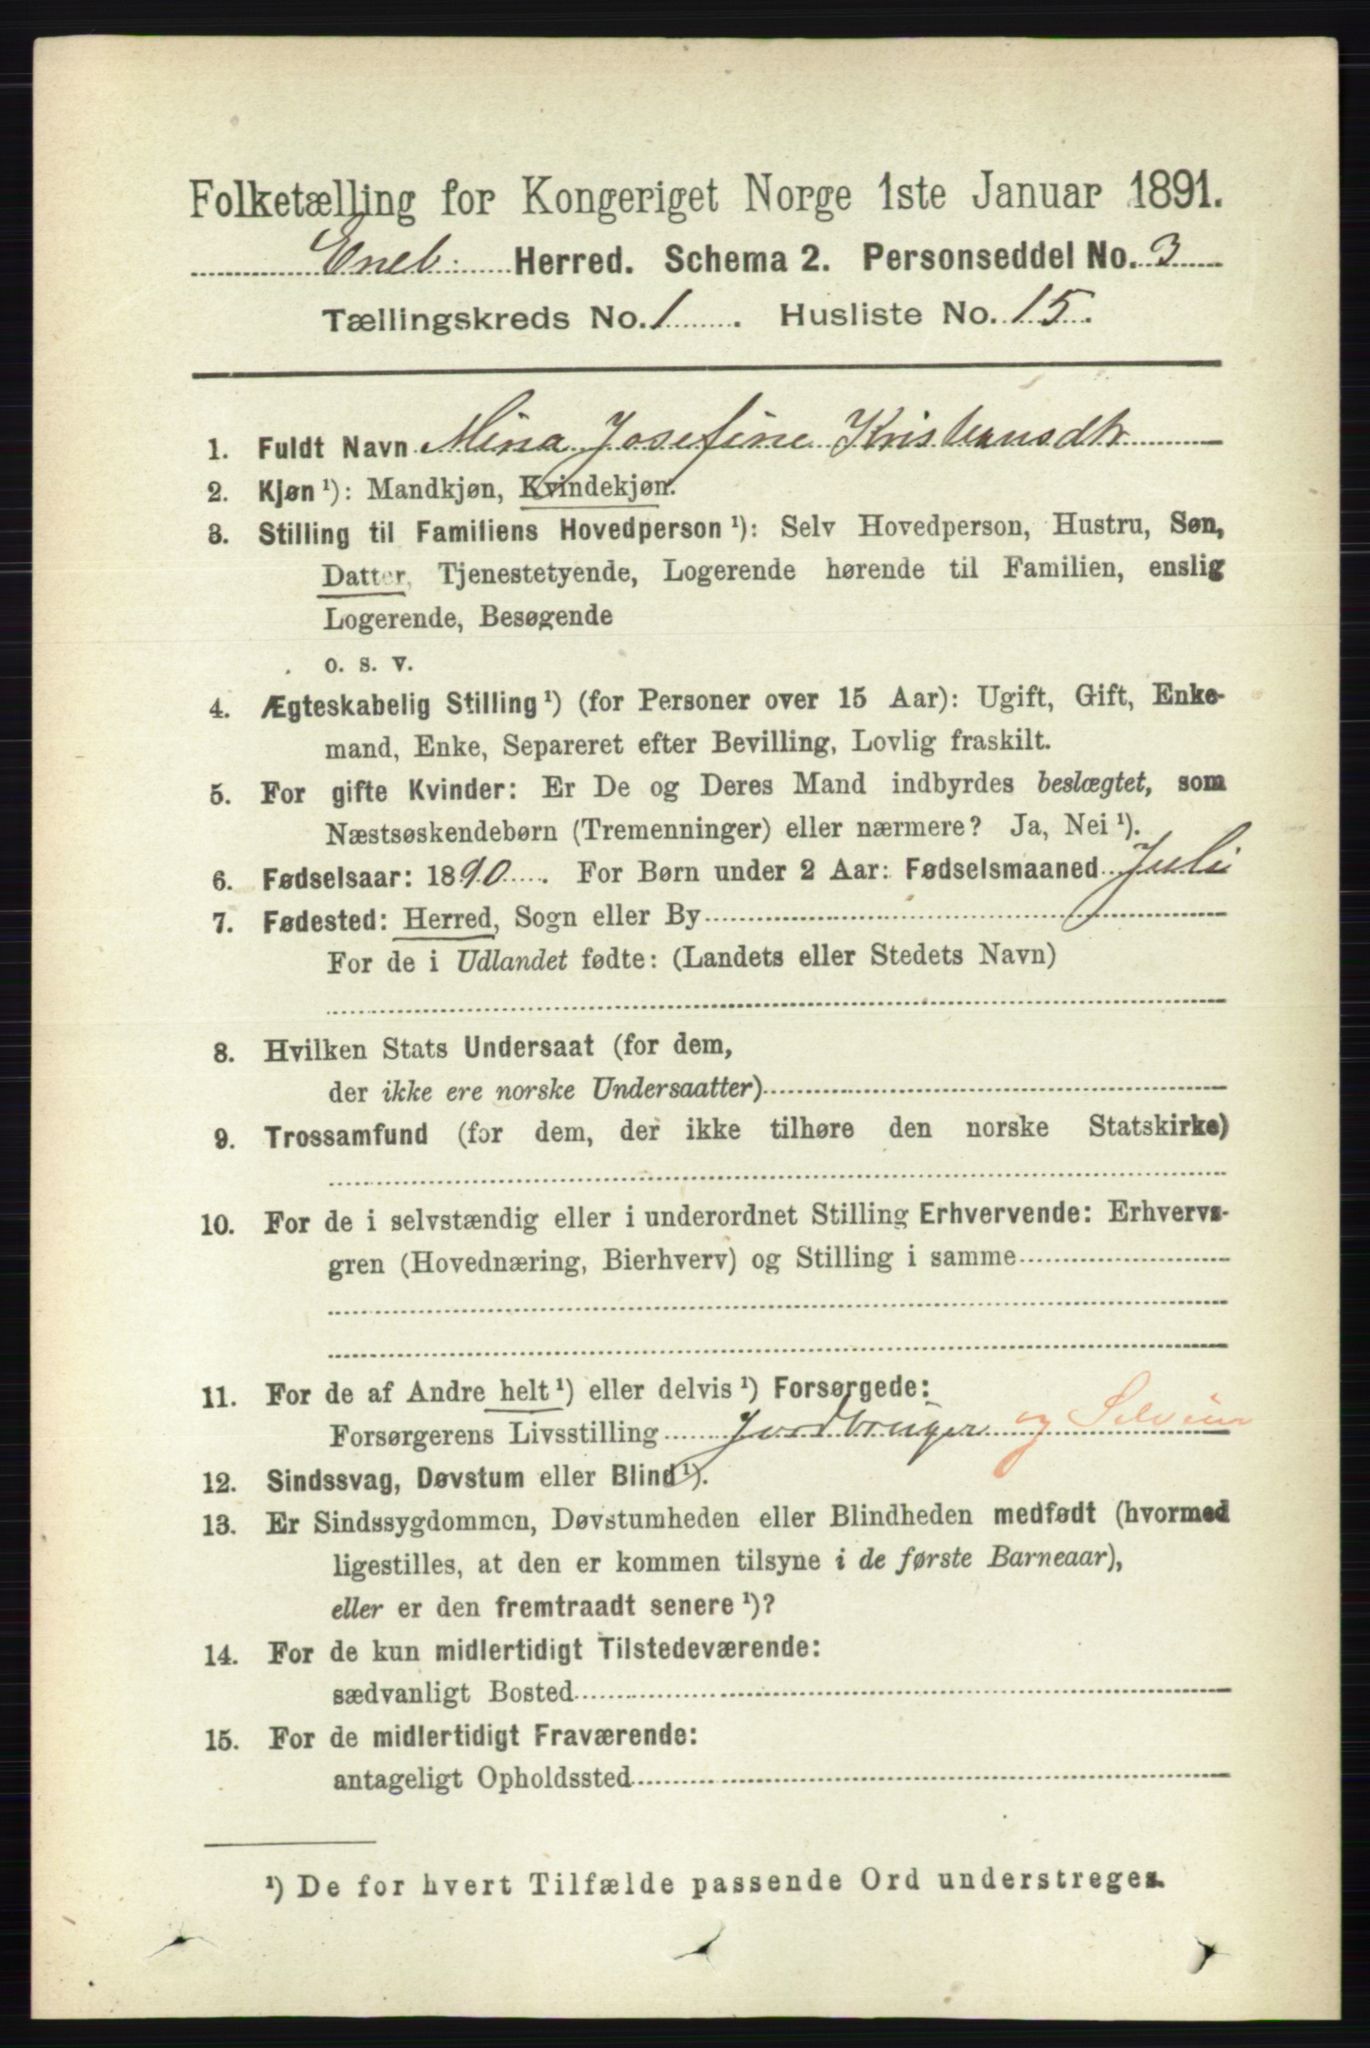 Folketælling for Kongeriget Norge 1ste Januar 1891.
Eneb. Herred. Schema 2. Personseddel No. 3
Tællingskreds No. 1. Husliste No. 15.
1. Fuldt Navn Mina Josefine Kristiansdtr
2. Kjøn ¹): Mandkjøn, Kvindekjøn.
3. Stilling til Familiens Hovedperson ¹): Selv Hovedperson, Hustru, Søn,
Datter, Tjenestetyende, Logerende hørende til Familien, enslig
Logerende, Besøgende
o. s. v.
4. Ægteskabelig Stilling ¹) (for Personer over 15 Aar): Ugift, Gift, Enke-
mand, Enke, Separeret efter Bevilling, Lovlig fraskilt.
5. For gifte Kvinder: Er De og Deres Mand indbyrdes beslægtet, som
Næstsøskendebørn (Tremenninger) eller nærmere? Ja, Nei ¹).
6. Fødselsaar: 1890. For Børn under 2 Aar: Fødselsmaaned Juli
7. Fødested: Herred, Sogn eller By
For de i Udlandet fødte: (Landets eller Stedets Navn)
8. Hvilken Stats Undersaat (for dem,
der ikke ere norske Undersaatter)
9. Trossamfund (for dem, der ikke tilhøre den norske Statskirke)
10. For de i selvstændig eller i underordnet Stilling Erhvervende: Erhvervs-
gren (Hovednæring, Bierhverv) og Stilling i samme
11. For de af Andre helt ¹) eller delvis ¹) Forsørgede:
Forsørgerens Livsstilling Jordbruger og Selveier
12. Sindssvag, Døvstum eller Blind ¹).
13. Er Sindssygdommen, Døvstumheden eller Blindheden medfødt (hvormed
ligestilles, at den er kommen tilsyne i de første Barneaar),
eller er den fremtraadt senere ¹)?
14. For de kun midlertidigt Tilstedeværende:
sædvanligt Bosted
15. For de midlertidigt Fraværende:
antageligt Opholdssted
¹) De for hvert Tilfælde passende Ord understreges.